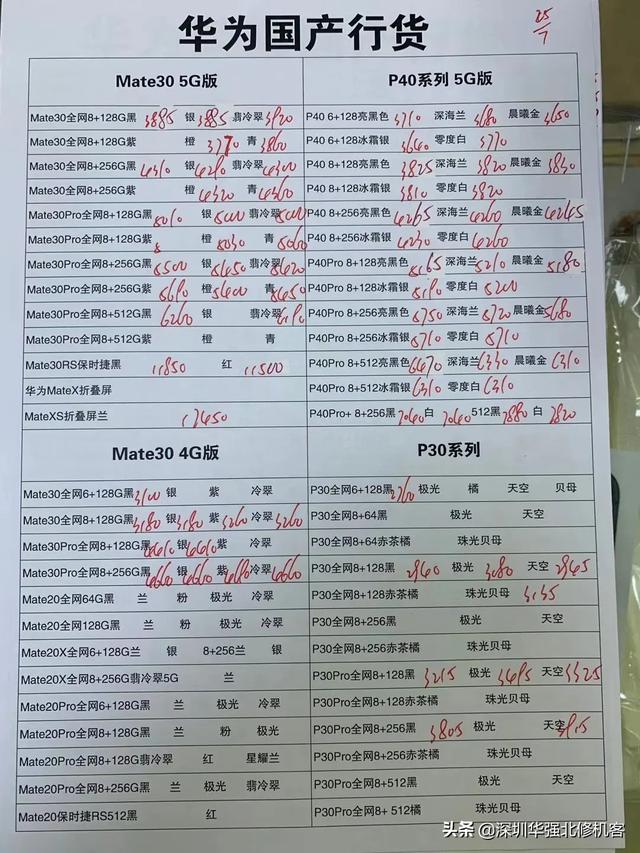 华为国产行货
25/7
Mate30 5G版
Mate30全网8+128G黑 3885 银 3885 翡冷翠 3920
Mate30全网8+128G紫 橙 3770 青 3860
Mate30全网8+256G黑 4310 银 4290 翡冷翠 4300
Mate30全网8+256G紫 橙 4320 青 4360
Mate30Pro全网8+128G黑 5010 银 5000 翡冷翠 5000
Mate30Pro全网8+128G紫 橙 5030 青 5060
Mate30Pro全网8+256G黑 5500 银 5450 翡冷翠 5420
Mate30Pro全网8+256G紫 5690 橙 5600 青 5450
Mate30Pro全网8+512G黑 6200 银 翡冷翠 6190
Mate30Pro全网8+512G紫 橙 青
Mate30RS保时捷黑 11850 红 11500
华为MateX折叠屏
MateXS折叠屏兰 17450
P40系列 5G版
P40 6+128亮黑色 3710 深海兰 3680 晨曦金 3650
P40 6+128冰霜银 3640 零度白 3770
P40 8+128亮黑色 3825 深海兰 3820 晨曦金 3830
P40 8+128冰霜银 3810 零度白 3820
P40 8+256亮黑色 4265 深海兰 4260 晨曦金 4245
P40 8+256冰霜银 4230 零度白 4260
P40Pro 8+128亮黑色 5165 深海兰 5210 晨曦金 5180
P40Pro 8+128冰霜银 5190 零度白 5200
P40Pro 8+256亮黑色 5750 深海兰 5720 晨曦金 5680
P40Pro 8+256冰霜银 5710 零度白 5710
P40Pro 8+512亮黑色 6470 深海兰 6330 晨曦金 6310
P40Pro 8+512冰霜银 6310 零度白 6310
P40Pro+ 8+256黑 7040 白 7040 512黑 7880 白 7820
Mate30 4G版
Mate30全网6+128G黑 3100 银 紫 冷翠
Mate30全网8+128G黑 3180 银 3180 紫 3260 冷翠 3260
Mate30Pro全网8+128G黑 4610 银 4610 紫 冷翠
Mate30Pro全网8+256G黑 4660 银 4660 紫 4680 冷翠 4660
Mate20全网64G黑 兰 粉 极光 冷翠
Mate20全网128G黑 兰 粉 极光 冷翠
Mate20X全网6+128G兰 银 8+256兰 银
Mate20X全网8+256G翡冷翠5G 兰
Mate20Pro全网6+128G黑 兰 极光 冷翠
Mate20Pro全网8+128G黑 兰 粉 极光
Mate20Pro全网8+128G翡冷翠 红 星耀兰
Mate20Pro全网8+256G黑 兰 极光 翡冷翠
Mate20保时捷RS512黑 红
P30系列
P30全网6+128黑 2760 极光 橘 天空 贝母
P30全网8+64黑 极光 天空
P30全网8+64赤茶橘 珠光贝母
P30全网8+128黑 2940 极光 3080 天空 2945
P30全网8+128赤茶橘 珠光贝母 3135
P30全网8+256黑 极光 天空
P30全网8+256赤茶橘 珠光贝母
P30Pro全网8+128黑 3215 极光 3495 天空 3325
P30Pro全网8+128赤茶橘 珠光贝母
P30Pro全网8+256黑 3805 极光 天空 3915
P30Pro全网8+256赤茶橘 珠光贝母
P30Pro全网8+512黑 极光 天空
P30Pro全网8+ 512橘 珠光贝母
头条 @深圳华强北修机客